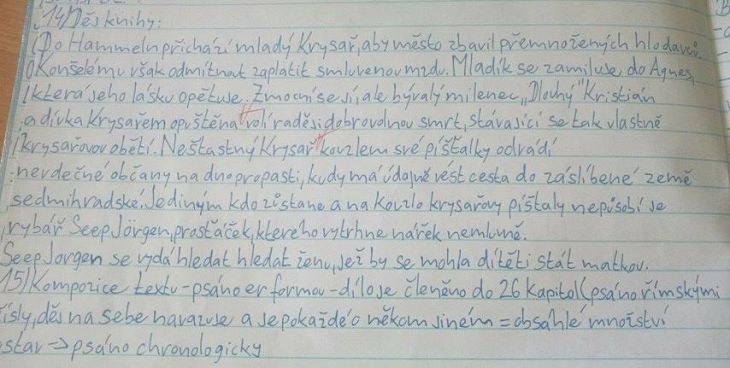 14) Děs knihy:
Do Hammeln přichází mladý Krysař, aby město zbavil přemnožených hlodavců.
Konšelé mu však odmítnout zaplatit smluvenou mzdu. Mladík se zamiluje do Agnes,
která jeho lásku opětuje. Zmocní se jí, ale bývalý milenec „Dlouhý" Kristián
a dívka Krysařem opuštěna volí raději dobrovolnou smrt, stávající se tak vlastně
krysařovou obětí. Nešťastný Krysař kouzlem své píšťalky odvádí
nevděčné občany na dno propasti, kudy má údajně vést cesta do zaslíbené země
sedmihradské. Jediným kdo zůstane a na kouzlo krysařovy píšťaly nepůsobí je
rybář Seep Jörgen, prosťáček, kterého vytrhne nářek nemluvně.
Seep Jorgen se vydá hledat hledat ženu, jež by se mohla dítěti stát matkou.
15) Kompozice textu - psáno er formou - dílo je členěno do 26 kapitol (psáno římskými
čísly, děs na sebe navazuje a je pokaždé o někom jiném = obsáhlé množství
postav => psáno chronologicky